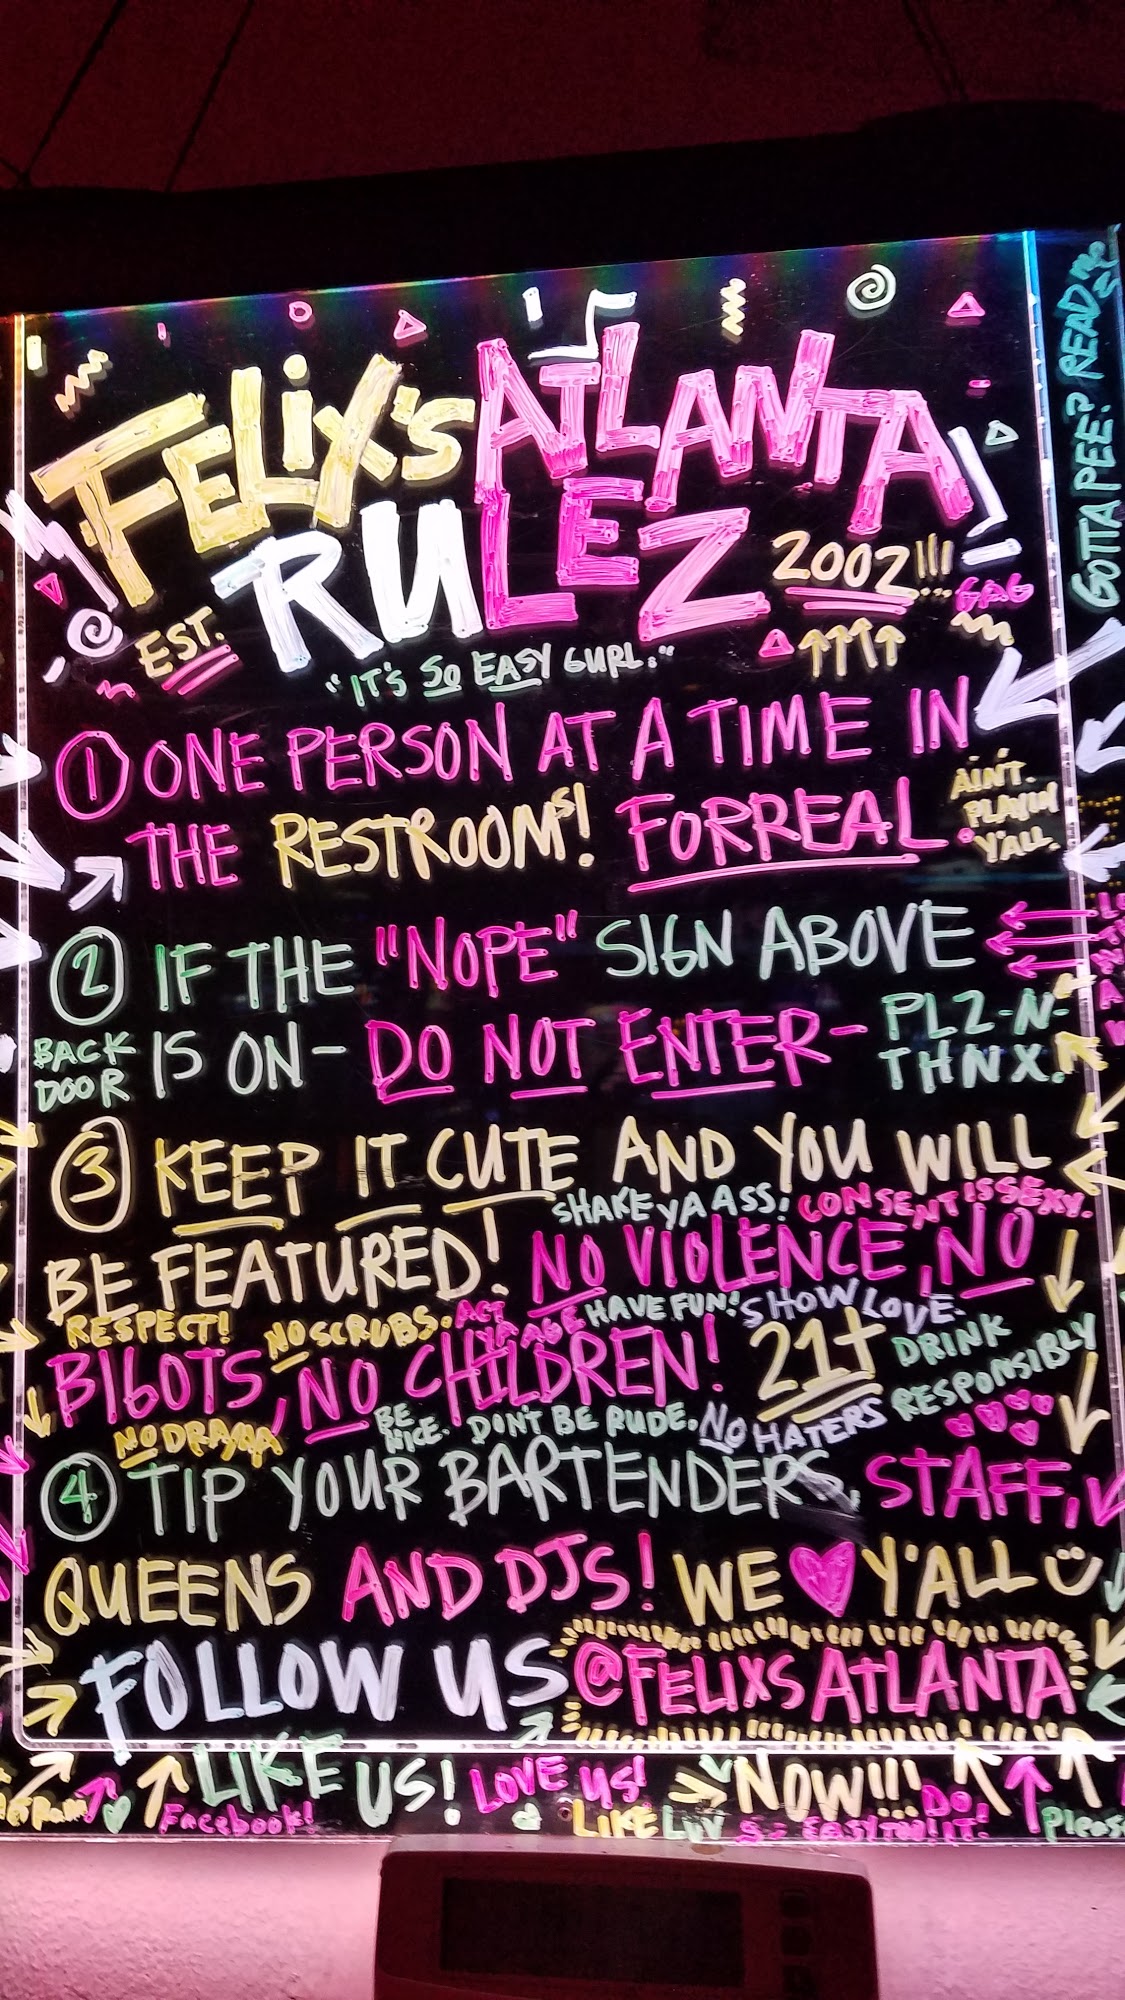 FELIX'S ATLANTA
RULEZ
EST. 2002!!!
GAG
"IT'S SO EASY GURL."
GOTTA PEE? READ ME
① ONE PERSON AT A TIME IN
THE RESTROOMS! FORREAL.
AIN'T
PLAYIN
Y'ALL.
② IF THE "NOPE" SIGN ABOVE
BACK
DOOR
IS ON - DO NOT ENTER -
PLZ-N-
THNX!
③ KEEP IT CUTE AND YOU WILL
SHAKE YA ASS! CONSENT IS SEXY.
BE FEATURED! NO VIOLENCE, NO
RESPECT! NO SCRUBS. ACT YA AGE HAVE FUN! SHOW LOVE.
BIGOTS, NO CHILDREN! 21+ DRINK RESPONSIBLY
NO DRAMA BE NICE. DON'T BE RUDE. NO HATERS
④ TIP YOUR BARTENDERS, STAFF,
QUEENS AND DJS! WE ♥ Y'ALL
FOLLOW US @FELIXSATLANTA
LIKE US! LOVE US! NOW!!!
Facebook! LIKE LUV SO EASY TO DO IT!